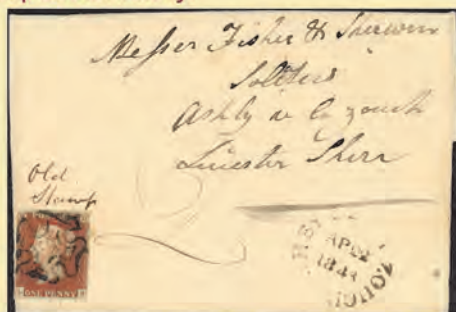 Messer Fisher & Sherwin
Solters
Ashby de la zouch
Liester Sherr
Old
Stamp
ONE PENNY
AP
184
ZOUCH